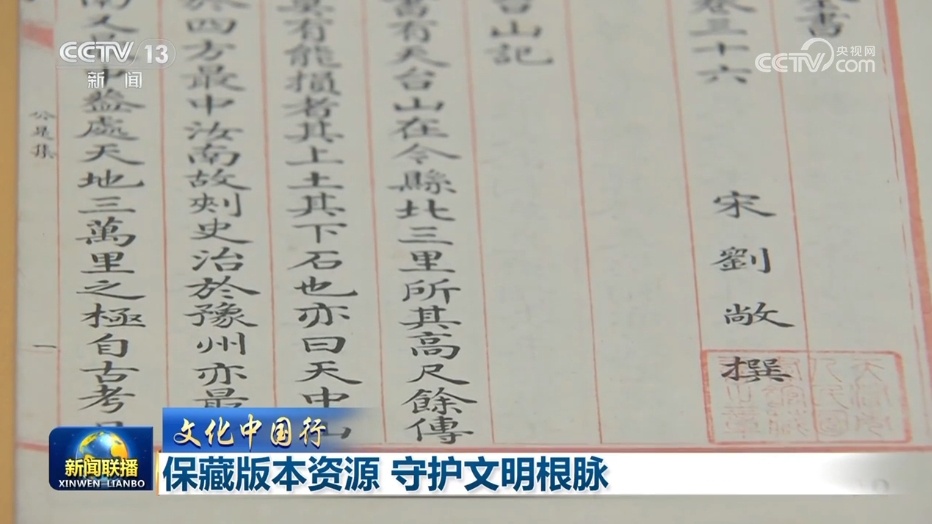 CCTV 13
新闻
央视网
CCTV.com
書
卷三十六 宋劉敞撰
台山記
書有天台山在令縣北三里所其高尺餘傳
有能損者其上土其下石也亦曰天中山
於四方最中汝南故刺史治於豫州亦最
南又中益處天地三萬里之極自古考
公是集
一
文化中国行
新闻联播
XINWEN LIANBO
保藏版本资源 守护文明根脉